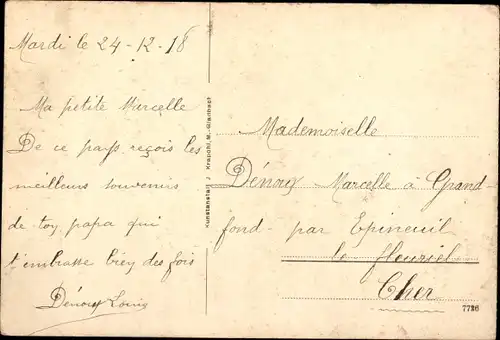 Mardi le 24-12-18
Ma petite Marcelle
De ce pays reçois les
meilleurs souvenirs
de toy papa qui
t'embrasse bien des fois
Dénoux Louis
Kunstanstalt Krapohl, M.-Gladbach
Mademoiselle
Dénoux Marcelle à Grand-
fond - par Epineuil
le fleuriel
Cher
7726